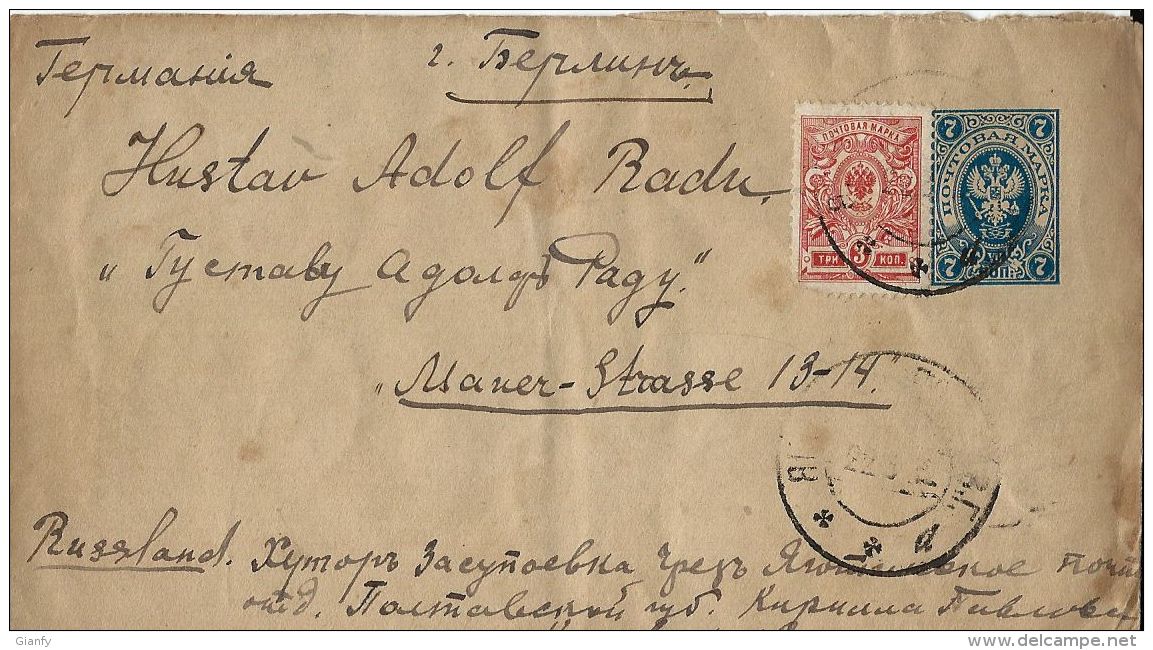 Германія г. Берлинъ
ПОЧТОВАЯ МАРКА
ТРИ 3 КОП.
7 7
ПОЧТОВАЯ МАРКА
7 КОП. 7
Hustav Adolf Radu,
„Густаву Адолфъ Раду"
„Mauer-Strasse 13-14."
Russland. Хуторъ Засупоевка Чрезъ Яготинское почт
отд. Полтавской губ. Кирилла Павлова
Gianfy
delcampe.net